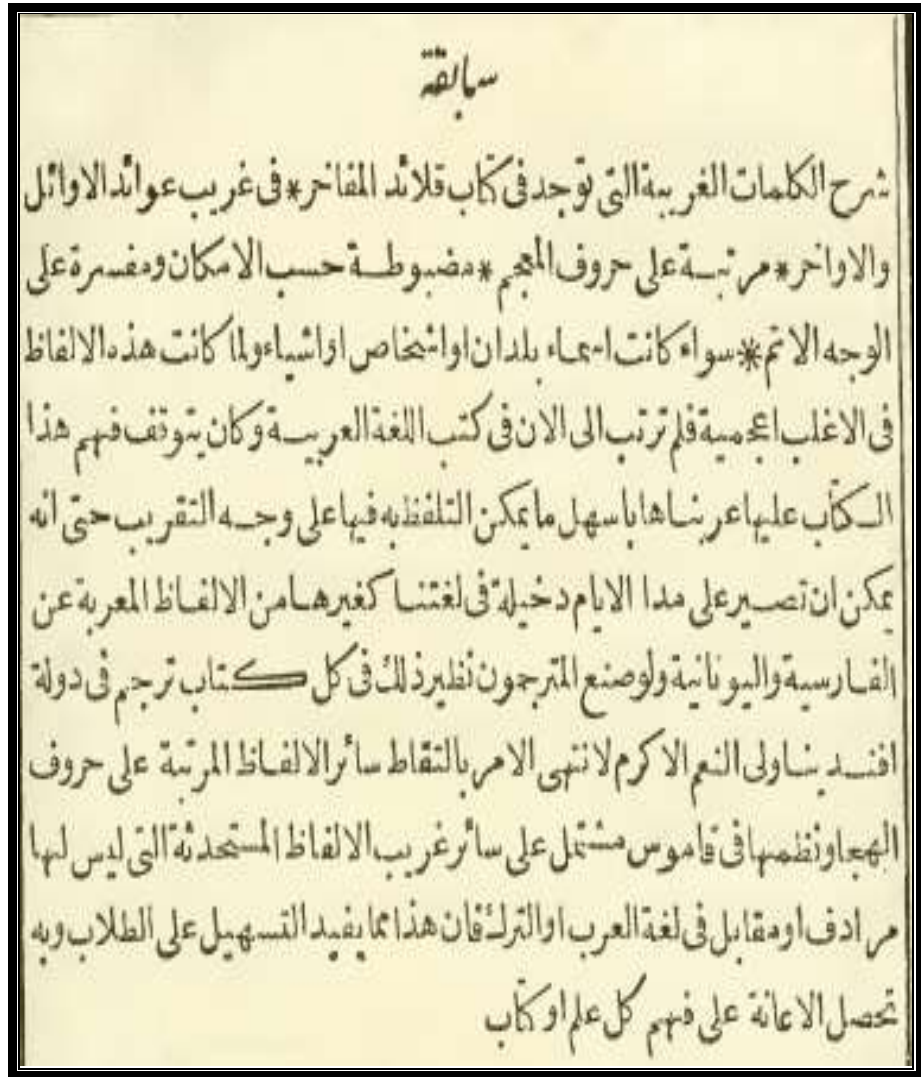 سابقة
شرح الكلمات الغريبة التي توجد فى كتاب قلائد المفاخر * فى غريب عوائد الاوائل
والاواخر * مرتبة على حروف المعجم * مضبوطة حسب الامكان ومفسرة على
الوجه الاتم * سواء كانت اسماء بلدان او اشخاص او اشياء ولما كانت هذه الالفاظ
فى الاغلب اعجمية فلم ترتب الى الان فى كتب اللغة العربية وكان يتوقف فهم هذا
الكتاب عليها عربناها باسهل ما يمكن التلفظ به فيها على وجه التقريب حتى انه
يمكن ان تصير على مدا الايام دخيلة فى لغتنا كغيرها من الالفاظ المعربة عن
الفارسية واليونانية ولو صنع المترجمون نظير ذلك فى كل كتاب ترجم فى دولة
افندينا ولى النعم الاكرم لانتهى الامر بالتقاط سائر الالفاظ المرتبة على حروف
الهجا ونظمها فى قاموس مشتمل على سائر غريب الالفاظ المستحدثة التى ليس لها
مرادف او مقابل فى لغة العرب او الترك فان هذا مما يفيد التسهيل على الطلاب وبه
تحصل الاعانة على فهم كل علم او كتاب